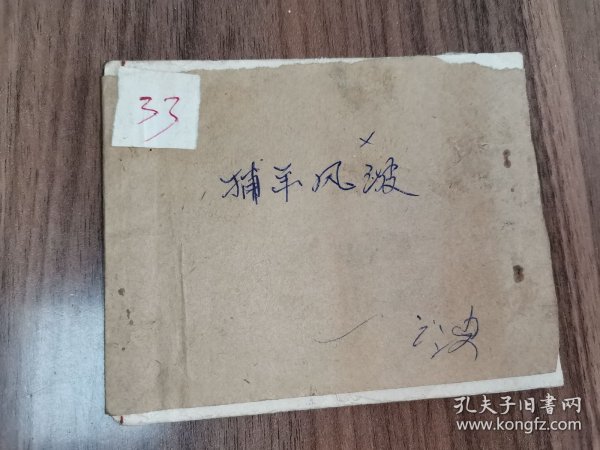 33
捕羊风波
孔夫子旧書网
www.kongfz.com